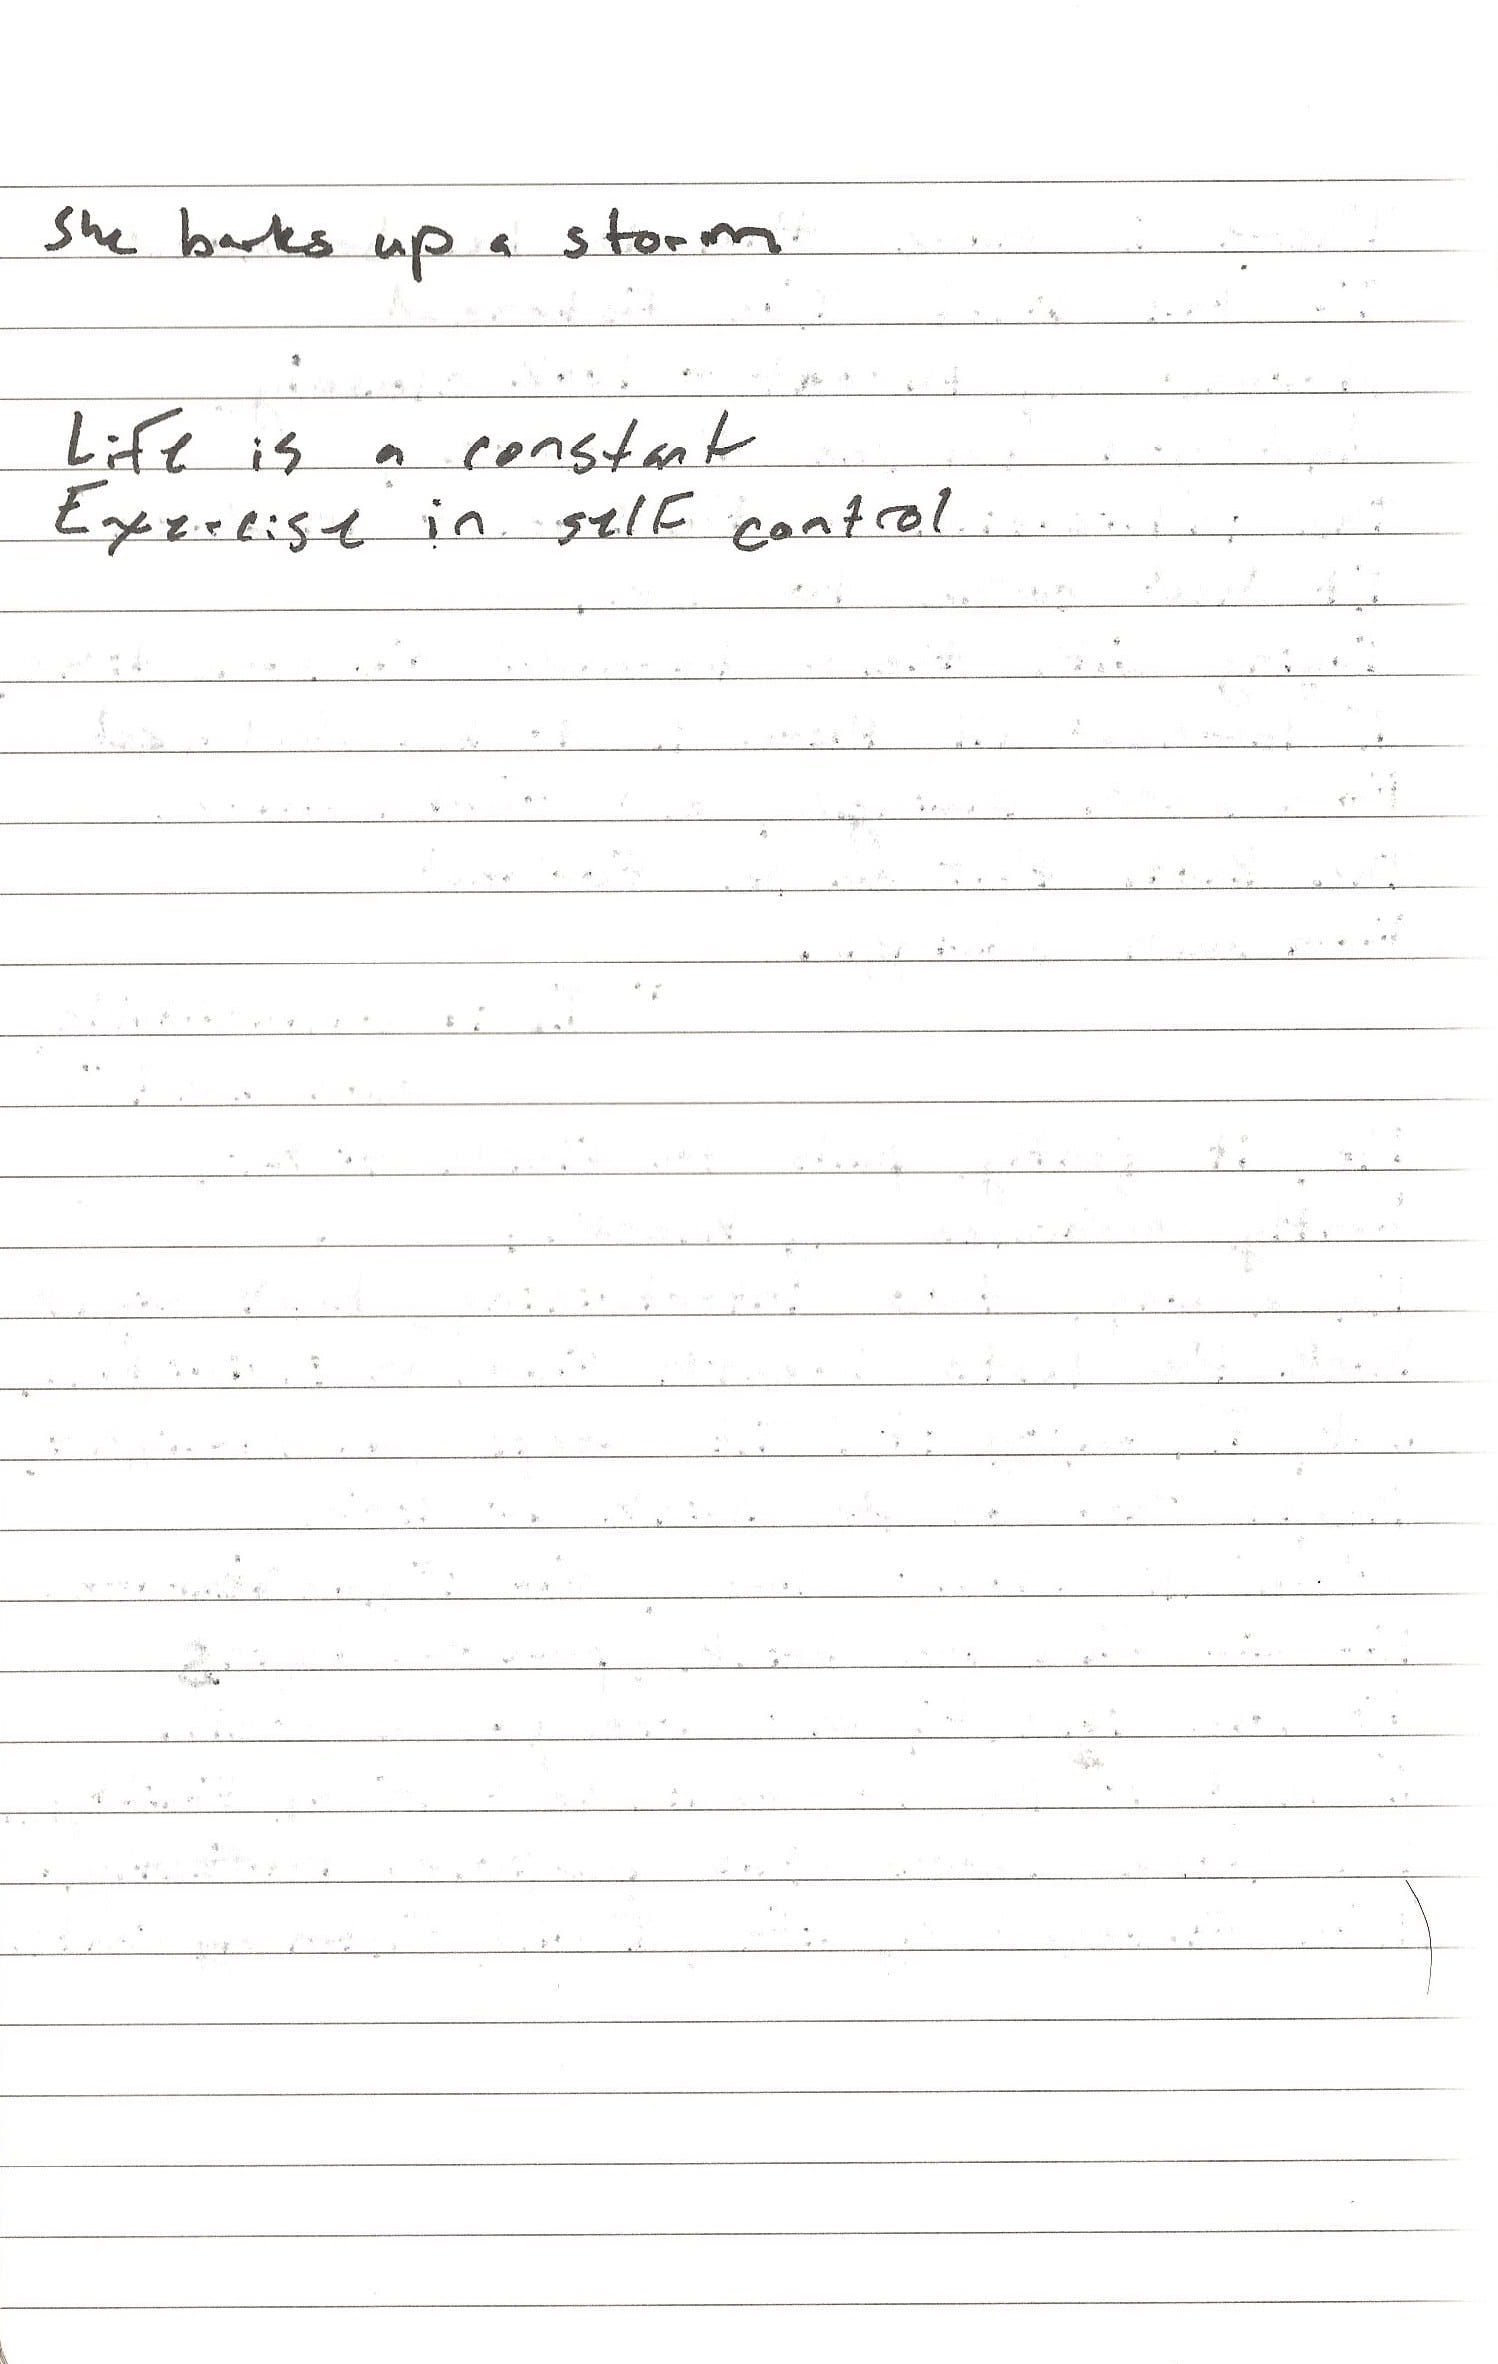 She barks up a storm
Life is a constant
Exercise in self control